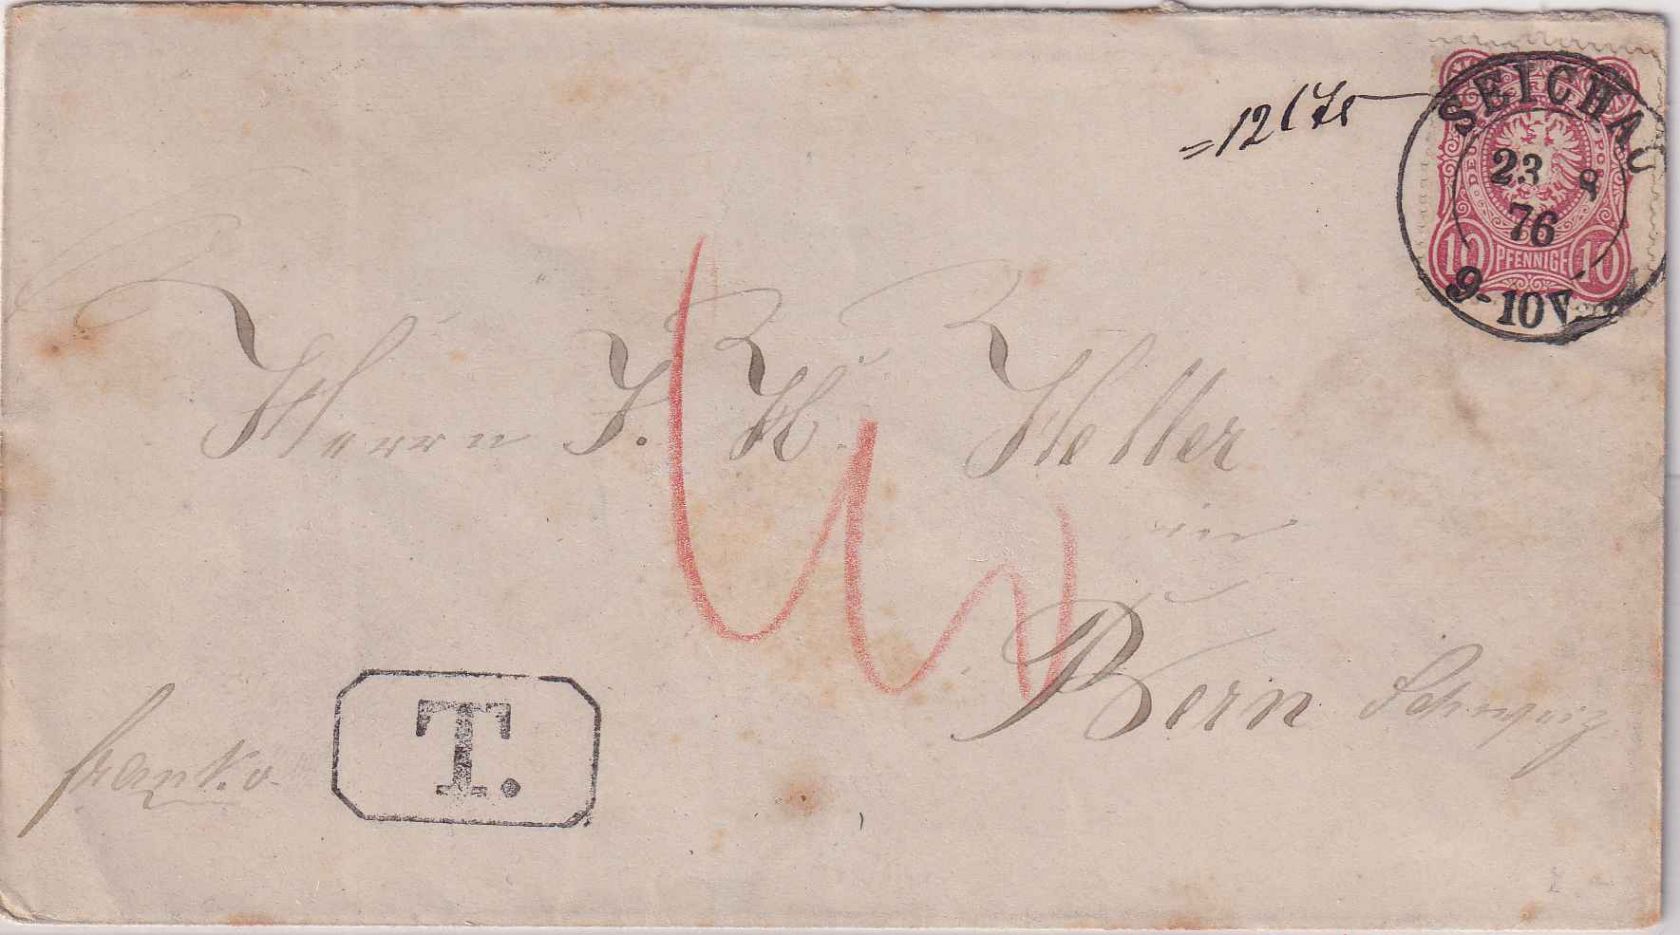 SEICHAU
23 8
76
9-10V.
10 PFENNIGE 10
Herrn J. H. Heller
in
Bern Schweiz
franko
T.